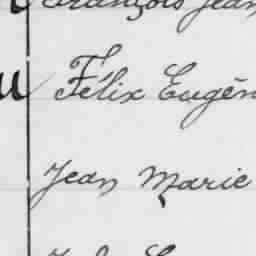 François Jean
Félix Eugèn
Jean Marie